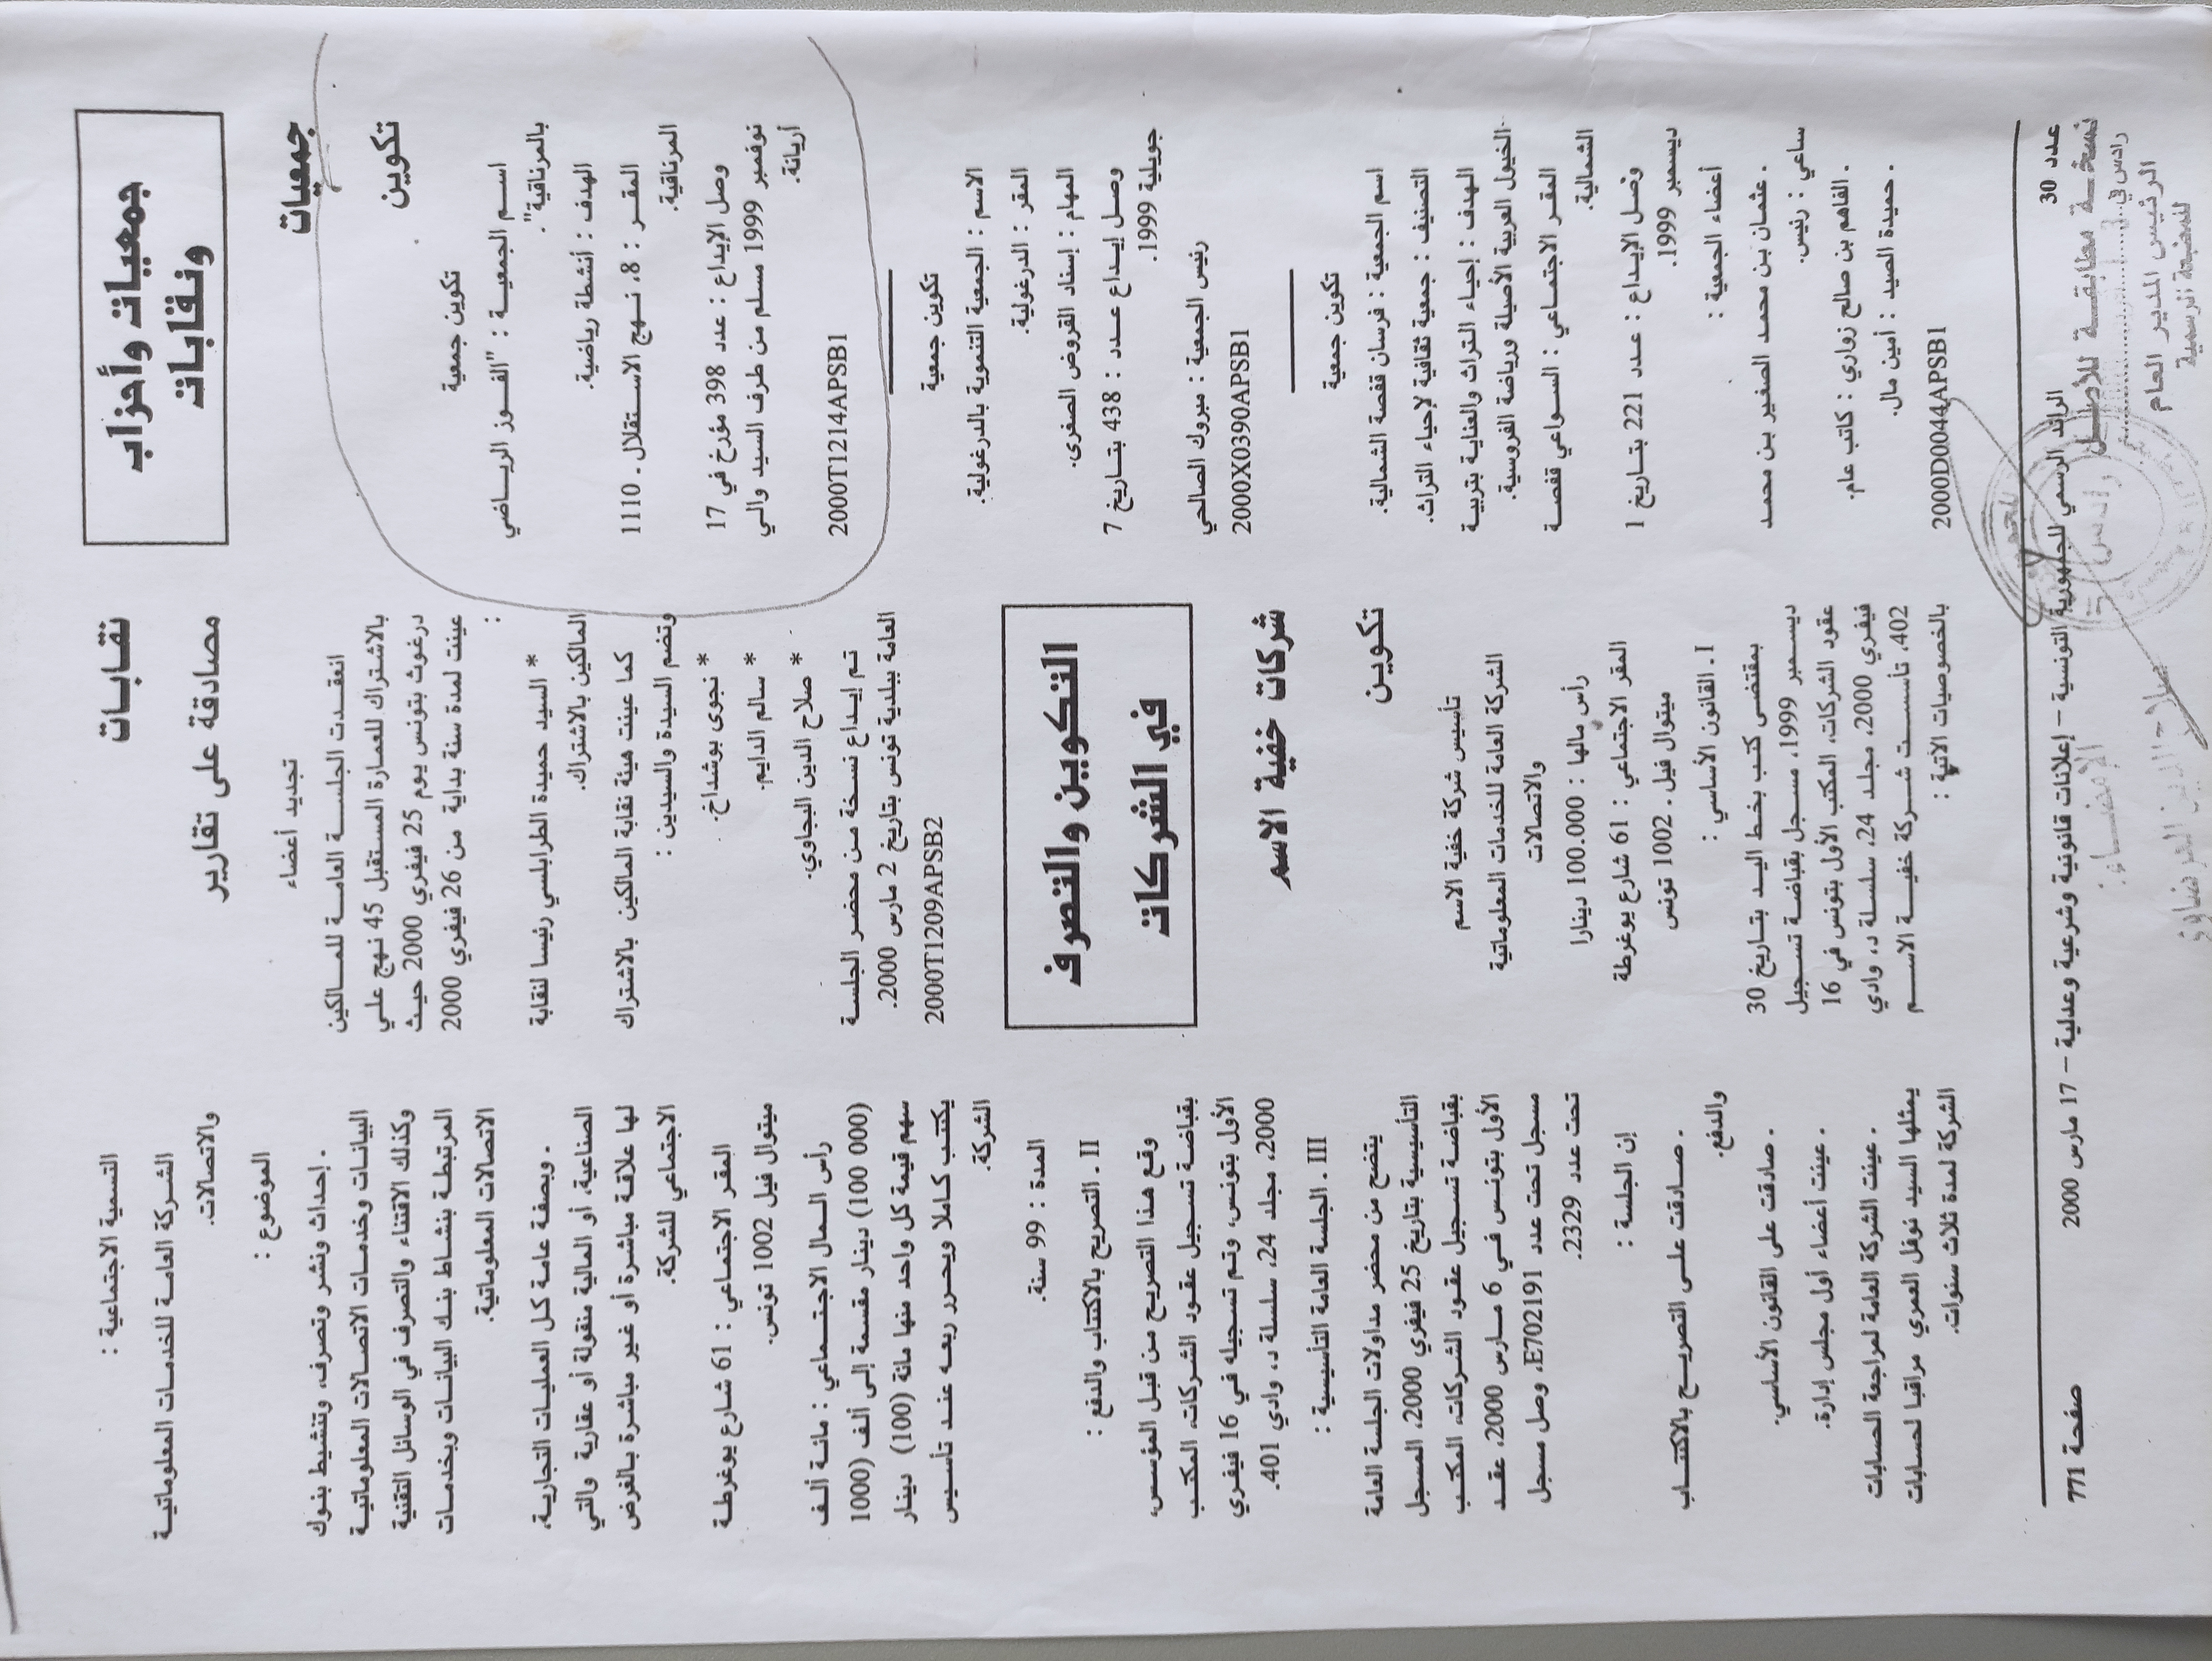 جمعيات وأحزاب
ونقابات
جمعيات
تكوين
تكوين جمعية
اسم الجمعية : "الفوز الرياضي
بالمرناقية".
الهدف : أنشطة رياضية.
المقر : 8، نهج الاستقلال ـ 1110
المرناقية.
وصل الإيداع : عدد 398 مؤرخ في 17
نوفمبر 1999 مسلم من طرف السيد والي
أريانة.
2000T1214APSB1
تكوين جمعية
الاسم : الجمعية التنموية بالدرغولية.
المقر : الدرغولية.
المهام : إسناد القروض الصغرى.
وصل إيداع عدد : 438 بتاريخ 7
جويلية 1999.
رئيس الجمعية : مبروك الصالحي
2000X0390APSB1
تكوين جمعية
اسم الجمعية : فرسان قفصة الشمالية.
التصنيف : جمعية ثقافية لإحياء التراث.
الهدف : إحياء التراث والعناية بتربية
الخيول العربية الأصيلة ورياضة الفروسية.
المقر الاجتماعي : السواعي قفصة
الشمالية.
وصل الإيداع : عدد 221 بتاريخ 1
ديسمبر 1999.
أعضاء الجمعية :
ـ عثمان بن محمد الصغير بن محمد
ساعي : رئيس.
ـ الفاهم بن صالح زواري : كاتب عام.
ـ حميدة الصيد : أمين مال.
2000D0044APSB1
نقابات
مصادقة على تقارير
تجديد أعضاء
انعقدت الجلسة العامة للمالكين
بالاشتراك للعمارة المستقبل 45 نهج علي
درغوث بتونس يوم 25 فيفري 2000 حيث
عينت لمدة سنة بداية من 26 فيفري 2000
:
* السيد حميدة الطرابلسي رئيسا لنقابة
المالكين بالاشتراك.
كما عينت هيئة نقابة المالكين بالاشتراك
وتضم السيدة والسيدين :
* نجوى بوشداخ.
* سالم الدايم.
* صلاح الدين البجاوي.
تم إيداع نسخة من محضر الجلسة
العامة ببلدية تونس بتاريخ 2 مارس 2000.
2000T1209APSB2
التكوين والتصرف
في الشركات
شركات خفية الاسم
تكوين
تأسيس شركة خفية الاسم
الشركة العامة للخدمات المعلوماتية
والاتصالات
رأس مالها : 100.000 دينارا
المقر الاجتماعي : 61 شارع يوغرطة
ميتوال فيل ـ 1002 تونس
I ـ القانون الأساسي :
بمقتضى كتب بخط اليد بتاريخ 30
ديسمبر 1999، مسجل بقباضة تسجيل
عقود الشركات، المكتب الأول بتونس في 16
فيفري 2000، مجلد 24، سلسلة د، وادي
402، تأسست شركة خفية الاسم
بالخصوصيات الآتية :
التسمية الاجتماعية :
الشركة العامة للخدمات المعلوماتية
والاتصالات.
الموضوع :
ـ إحداث ونشر وتصرف، وتنشيط بنوك
البيانات وخدمات الاتصالات المعلوماتية
وكذلك الاقتناء والتصرف في الوسائل التقنية
المرتبطة بنشاط بنك البيانات وبخدمات
الاتصالات المعلوماتية.
ـ وبصفة عامة كل العمليات التجارية،
الصناعية، أو المالية منقولة أو عقارية والتي
لها علاقة مباشرة أو غير مباشرة بالغرض
الاجتماعي للشركة.
المقر الاجتماعي : 61 شارع يوغرطة
ميتوال فيل 1002 تونس.
رأس المال الاجتماعي : مائة ألف
(100 000) دينار مقسمة إلى ألف (1000
سهم قيمة كل واحد منها مائة (100) دينار
يكتتب كاملا ويحرر ربعه عند تأسيس
الشركة.
المدة : 99 سنة.
II ـ التصريح بالاكتتاب والدفع :
وقع هذا التصريح من قبل المؤسس،
بقباضة تسجيل عقود الشركات، المكتب
الأول بتونس، وتم تسجيله في 16 فيفري
2000، مجلد 24، سلسلة د، وادي 401.
III ـ الجلسة العامة التأسيسية :
يتضح من محضر مداولات الجلسة العامة
التأسيسية بتاريخ 25 فيفري 2000، المسجل
بقباضة تسجيل عقود الشركات، المكتب
الأول بتونس في 6 مارس 2000، عقد
مسجل تحت عدد E702191، وصل مسجل
تحت عدد 2329.
إن الجلسة :
ـ صادقت على التصريح بالاكتتاب
والدفع.
ـ صادقت على القانون الأساسي.
ـ عينت أعضاء أول مجلس إدارة.
ـ عينت الشركة العامة لمراجعة الحسابات
يمثلها السيد نوفل العمري مراقبا لحسابات
الشركة لمدة ثلاث سنوات.
عدد 30
الرائد الرسمي للجمهورية التونسية – إعلانات قانونية وشرعية وعدلية – 17 مارس 2000
صفحة 771
نسخة مطابقة للأصل
رادس في
الرئيس المدير العام
للمطبعة الرسمية
الإمضاء :